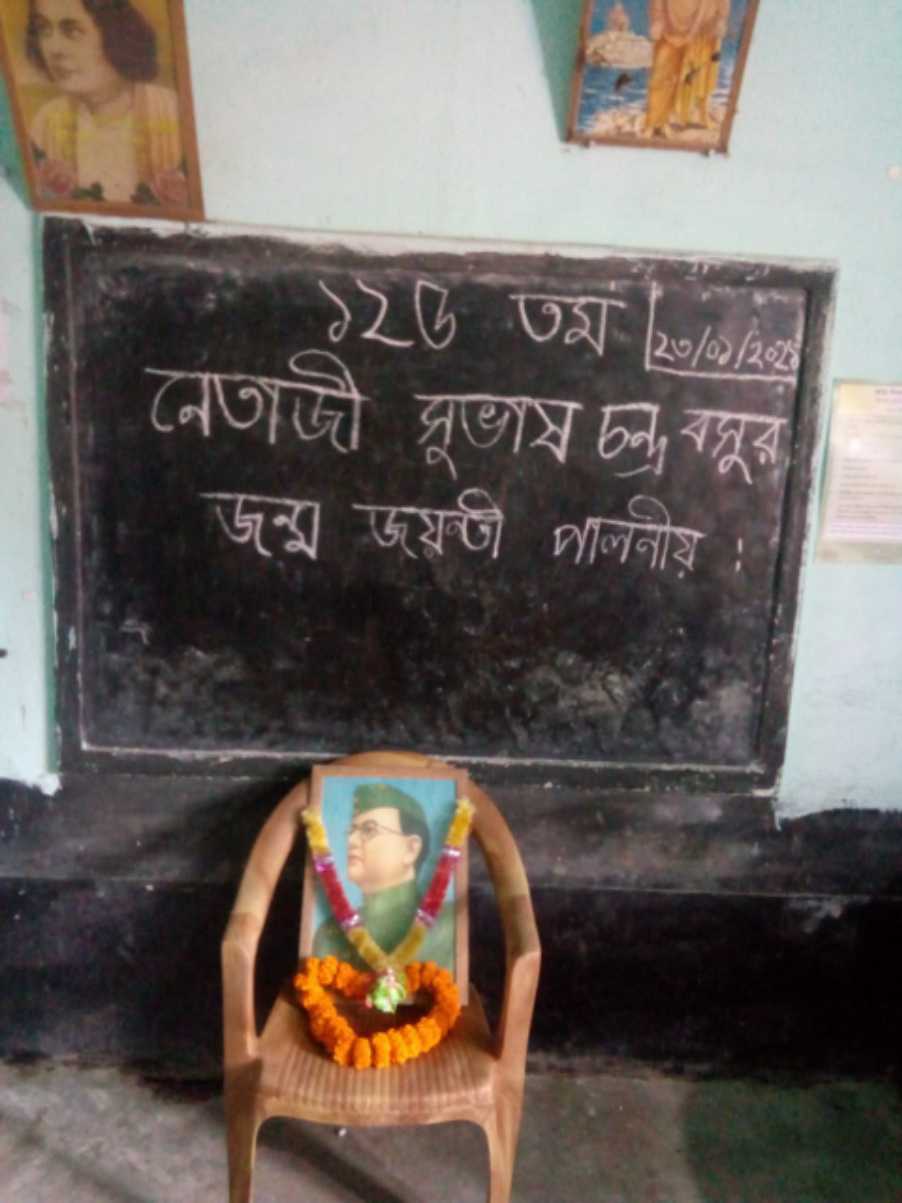 ১২৬ তম
২৩/০১/২০২১
নেতাজী সুভাষ চন্দ্র বসুর
জন্ম জয়ন্তী পালনীয় :